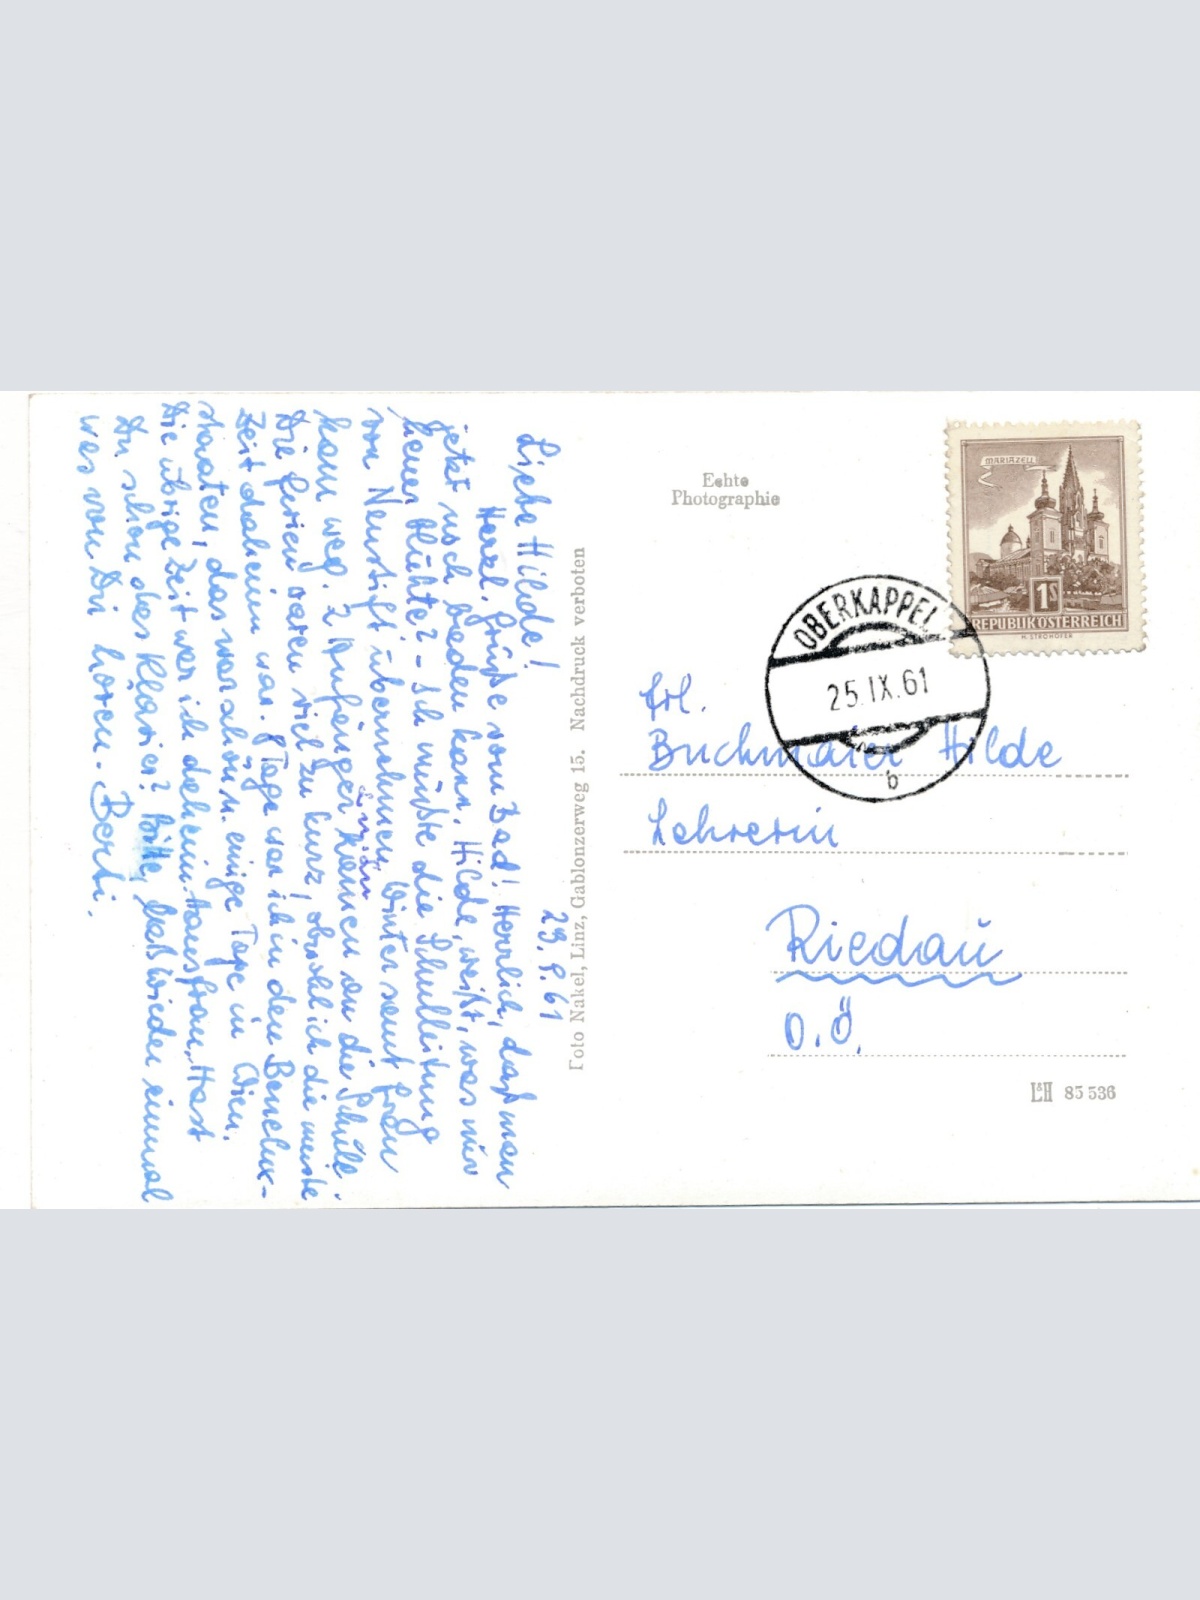 23. 9. 61
Liebe Hilde!
Herzl. Grüße vom Bad! Herrlich, daß man
jetzt noch baden kann. Hilde, weißt, was mir
heuer blühte? - Ich mußte die Schulleitung
von Neustift übernehmen, Winter samt Frau
kam weg. 2 Anfängerinnen an die Schule.
Die Ferien waren viel zu kurz, obwohl ich die meiste
Zeit daheim war. 8 Tage war ich in den Benelux-
staaten, das war schön u. einige Tage in Wien.
Die übrige Zeit war ich daheim Hausfrau. Hast
Du schon das Klavier? Bitte, laß wieder einmal
was von Dir hören. Berti.
Foto Nakel, Linz, Gablonzerweg 15. Nachdruck verboten
Echte
Photographie
MARIAZELL
1S
REPUBLIK ÖSTERREICH
H. STROHOFER
OBERKAPPEL
25.IX.61
b
Frl.
Buchmaier Hilde
Lehrerin
Riedau
O.Ö.
L&H 85 536